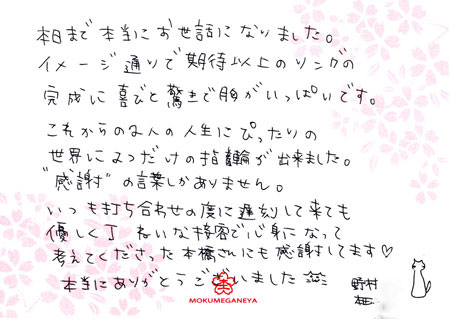 本日まで本当にお世話になりました。
イメージ通りで期待以上のリングの
完成に喜びと驚きで胸がいっぱいです。
これからの2人の人生にぴったりの
世界に1つだけの指輪が出来ました。
"感謝"の言葉しかありません。
いつも打ち合わせの度に遅刻して来ても
優しく丁ねいな接客で心身になって
考えてくださった本橋さんにも感謝してます♡
本当にありがとうございました
MOKUMEGANEYA
野村